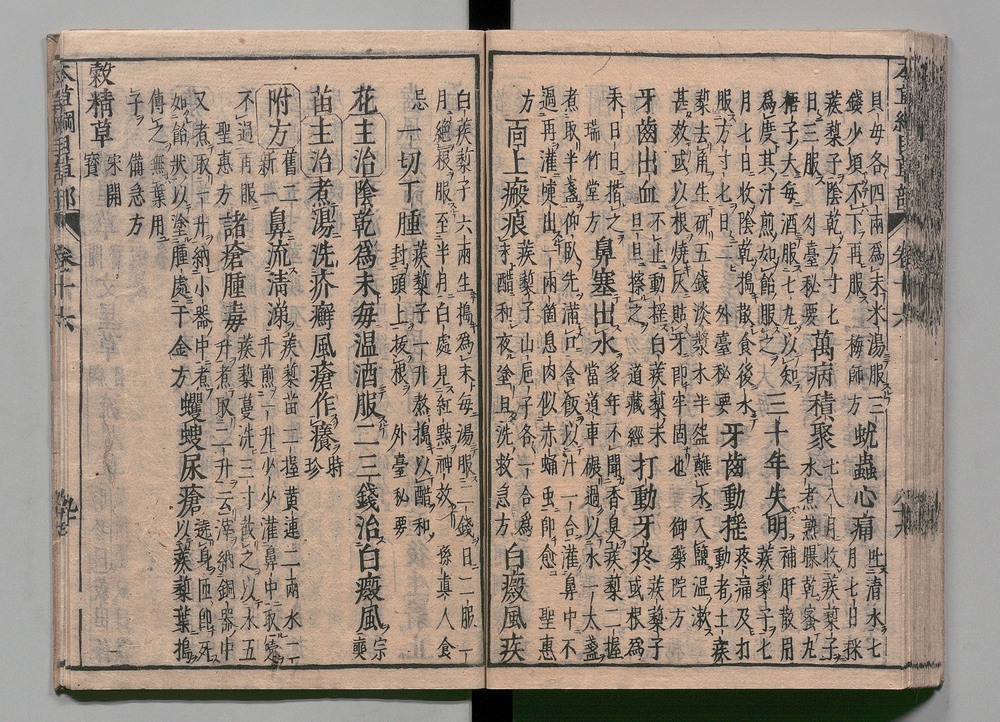 貝母各四兩為末米湯服三
錢少頃不下再服 梅師方
蚘蟲心痛
吐清水七
月七日採
蒺藜子陰乾方寸七
日三服 外臺秘要
萬病積聚
七八月收蒺藜子
水煮熟曝乾蜜九
梧子大每酒服七九以知
為度其汁煎如飴服之
三十年失明
補肝散用
蒺藜子七
月七日收陰乾搗散食後水
服方寸七日二 外臺秘要
牙齒動搖
疼痛及打
動者土蒺
藜去角生研五錢淡漿水半盌蘸水入鹽温漱
甚效或以根燒灰貼牙即牢固也 御藥院方
牙齒出血
不止動搖白蒺藜末
旦旦擦之 道藏經
打動牙疼
蒺藜子
或根為
末日日揩之
瑞竹堂方
鼻塞出水
多年不聞香臭蒺藜二握
當道車碾過以水一大盞
煮取半盞仰臥先滿口含飯以汁一合灌鼻中不
過再灌嚏出一兩箇息肉似赤蛹虫即愈 聖惠
方
面上瘢痕
蒺藜子山巵子各一合為
末醋和夜塗旦洗救急方
白癜風疾
白蒺藜子六兩生搗為末每湯服二錢日二服一
月絶根服至半月白處見紅點神效 孫真人食
忌
一切丁腫
蒺藜子一升熬搗以醋和
封頭上拔根 外臺秘要
花主治陰乾為末每温酒服二三錢治白癜風
宗奭
苗主治煮湯洗疥癬風瘡作癢
時珍
附方
舊二
新一
鼻流清涕
蒺藜苗二握黄連二兩水二
升煎一升少少灌鼻中取嚏
不過再服
聖惠方
諸瘡腫毒
蒺藜蔓洗三寸截之以水五
升煮取二升去滓納銅器中
又煮取一升納小器中煮
如飴狀以塗腫處千金方
蠼螋尿瘡
遶身匝即死
以蒺藜葉搗
傅之無葉用
子 備急方
穀精草
宋開
寶
本草綱目草部 卷十六